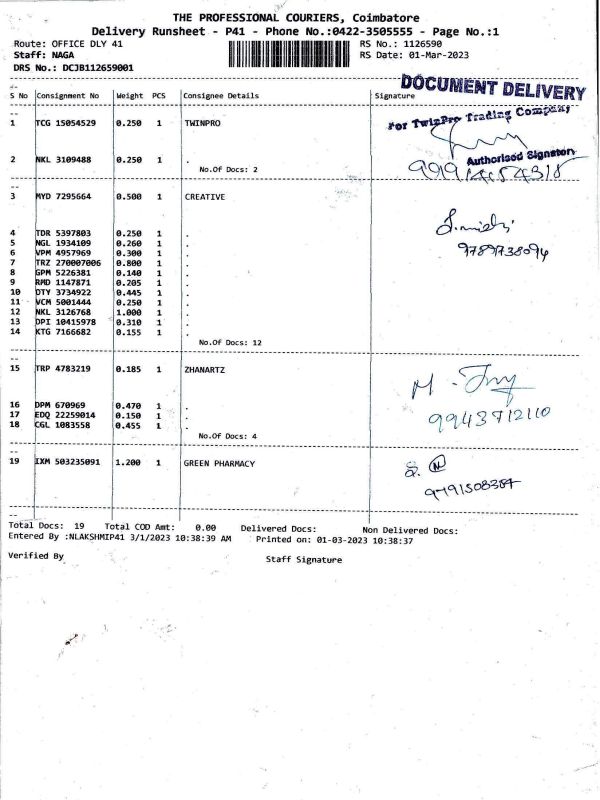 THE PROFESSIONAL COURIERS, Coimbatore
Delivery Runsheet - P41 - Phone No.:0422-3505555 - Page No.:1
Route: OFFICE DLY 41 RS No.: 1126590
Staff: NAGA RS Date: 01-Mar-2023
DRS No.: DCJB112659001
DOCUMENT DELIVERY
--
S No Consignment No Weight PCS Consignee Details Signature
--
1 TCG 15054529 0.250 1 TWINPRO
For TwinPro Trading Company
2 NKL 3109488 0.250 1 .
Authorised Signatory
No.Of Docs: 2
--
3 MYD 7295664 0.500 1 CREATIVE
4 TDR 5397803 0.250 1 .
5 NGL 1934109 0.260 1 .
6 VPM 4957969 0.300 1 .
9789738094
7 TRZ 270007006 0.800 1 .
8 GPM 5226381 0.140 1 .
9 RMD 1147871 0.205 1 .
10 DTY 3734922 0.445 1 .
11 VCM 5001444 0.250 1 .
12 NKL 3126768 1.000 1 .
13 DPI 10415978 0.310 1 .
14 KTG 7166682 0.155 1 .
No.Of Docs: 12
--
15 TRP 4783219 0.185 1 ZHANARTZ
16 DPM 670969 0.470 1 .
17 EDQ 22259014 0.150 1 .
9943712110
18 CGL 1083558 0.455 1 .
No.Of Docs: 4
--
19 IXM 503235091 1.200 1 GREEN PHARMACY
--
Total Docs: 19 Total COD Amt: 0.00 Delivered Docs: Non Delivered Docs:
Entered By :NLAKSHMIP41 3/1/2023 10:38:39 AM Printed on: 01-03-2023 10:38:37
Verified By Staff Signature